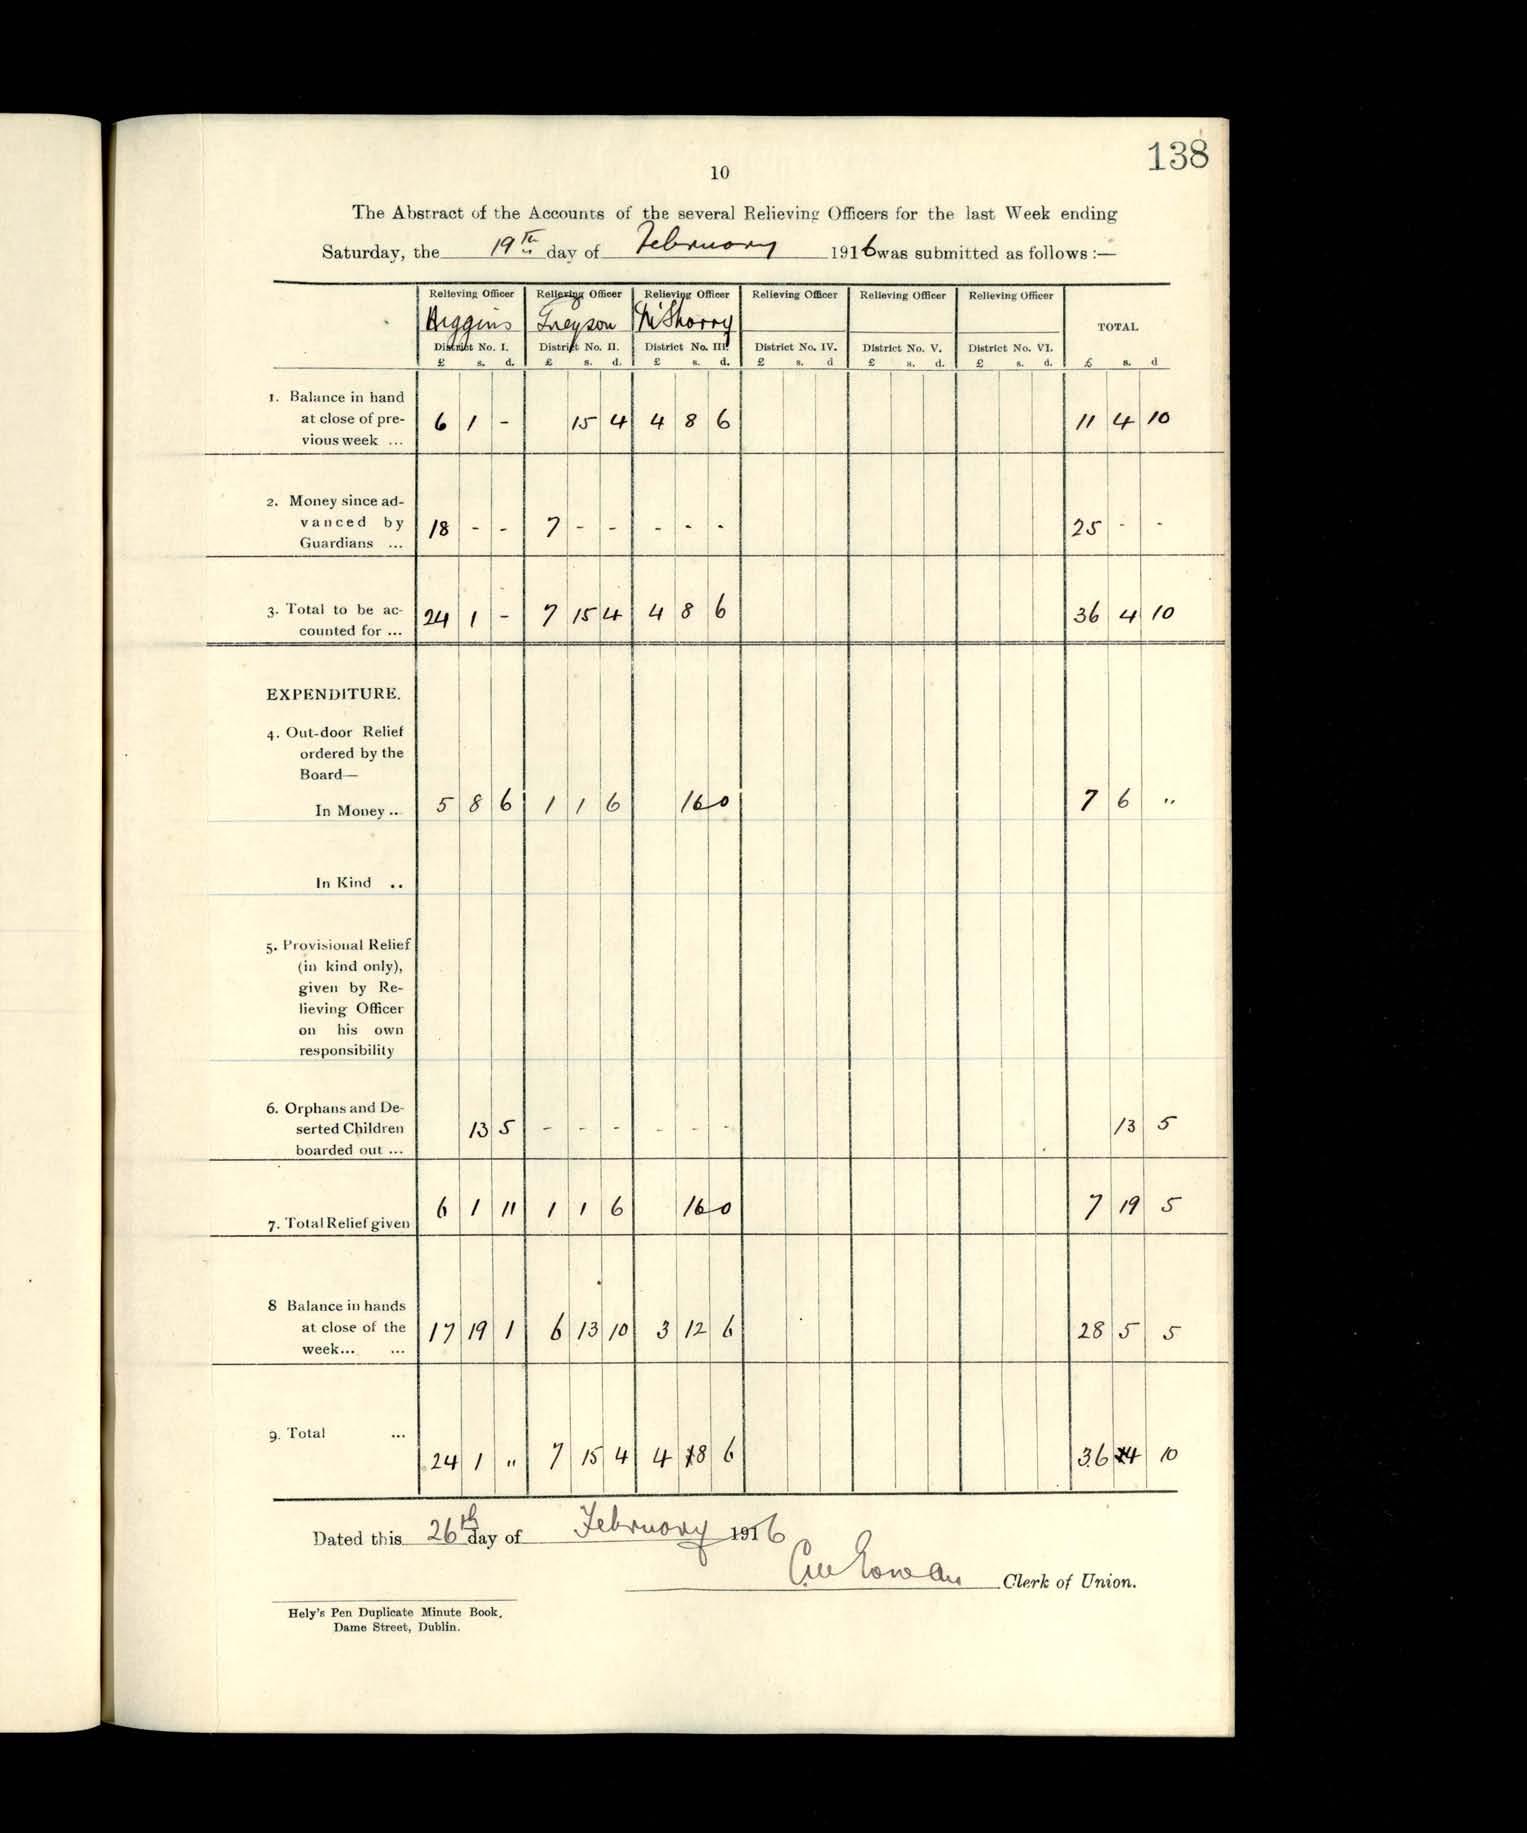 138
10
The Abstract of the Accounts of the several Relieving Officers for the last Week ending
Saturday, the 19th day of February 1916 was submitted as follows :—
Relieving Officer Relieving Officer Relieving Officer Relieving Officer Relieving Officer Relieving Officer
Higgins Greyson McSharry TOTAL
District No. I. District No. II. District No. III. District No. IV. District No. V. District No. VI.
£ s. d. £ s. d. £ s. d. £ s. d £ s. d. £ s. d. £ s. d
1. Balance in hand
at close of pre-
vious week ... 6 1 - 15 4 4 8 6 11 4 10
2. Money since ad-
vanced by
Guardians ... 18 - - 7 - - - - - 25 - -
3. Total to be ac-
counted for ... 24 1 - 7 15 4 4 8 6 36 4 10
EXPENDITURE.
4. Out-door Relief
ordered by the
Board—
In Money .. 5 8 6 1 1 6 16 0 7 6 "
In Kind ..
5. Provisional Relief
(in kind only),
given by Re-
lieving Officer
on his own
responsibility
6. Orphans and De-
serted Children
boarded out ... 13 5 - - - - - - 13 5
7. Total Relief given 6 1 11 1 1 6 16 0 7 19 5
8 Balance in hands
at close of the
week... ... 17 19 1 6 13 10 3 12 6 28 5 5
9. Total ... 24 1 " 7 15 4 4 8 6 36 4 10
Dated this 26th day of February 1916
Clerk of Union.
Hely's Pen Duplicate Minute Book,
Dame Street, Dublin.